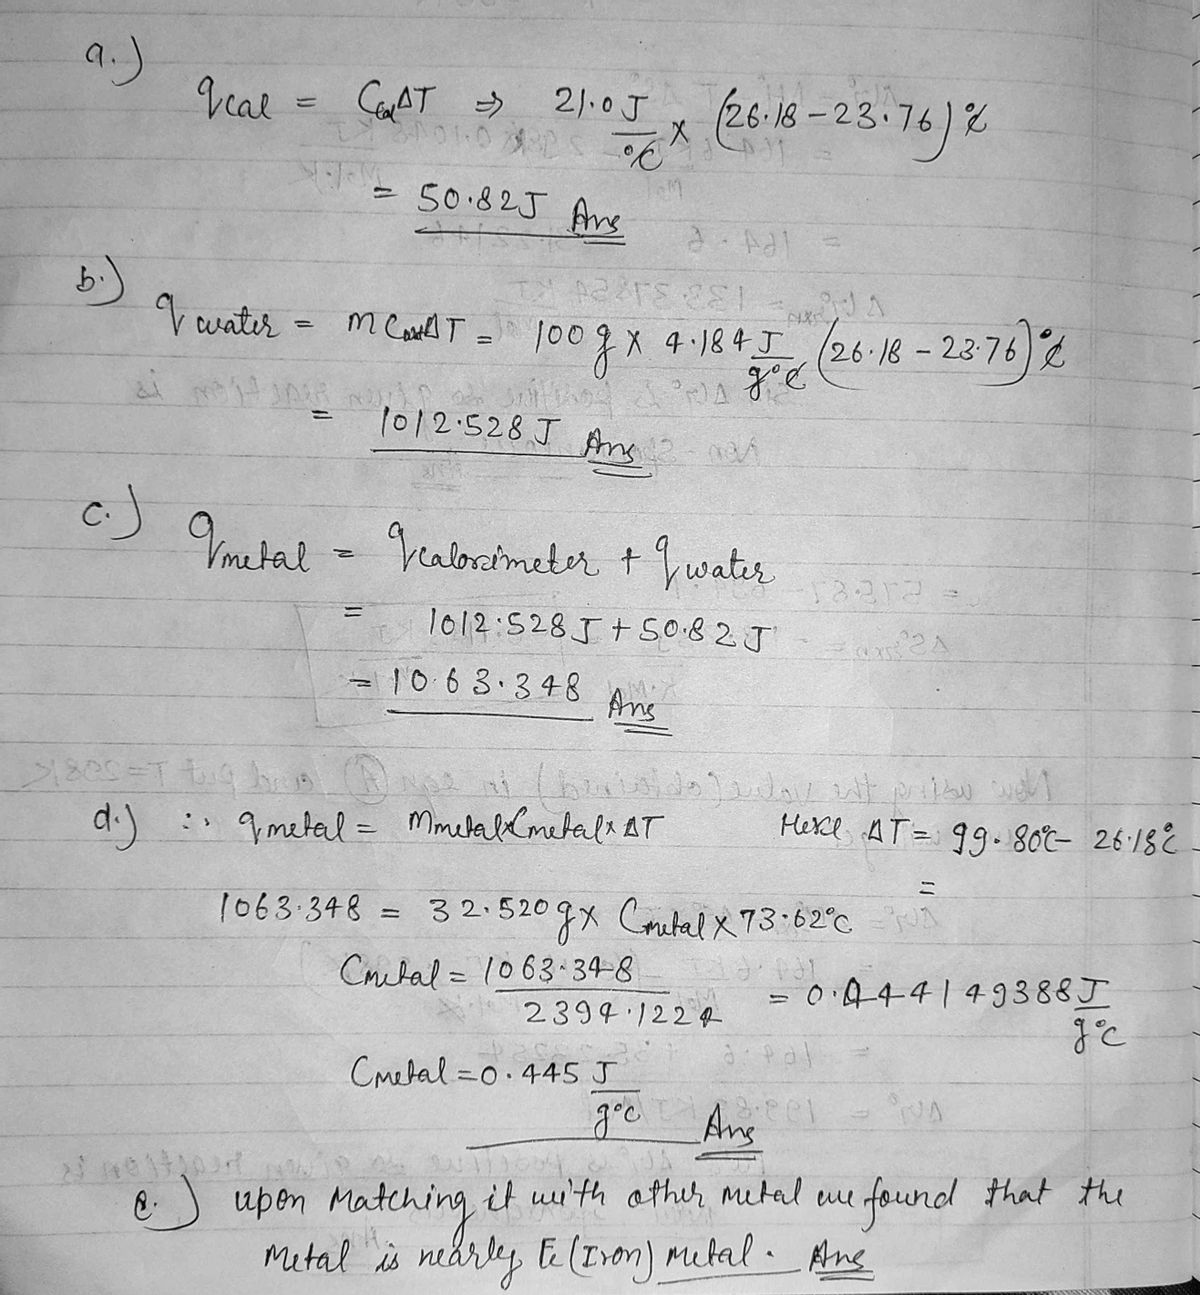 a.)
qcal = Ccal ΔT ⇒ 21.0 J/°C × (26.18 - 23.76)°C
= 50.82 J Ans
b.)
q water = m Cwater ΔT = 100 g × 4.184 J/g°C (26.18 - 23.76)°C
= 1012.528 J Ans
c.) qmetal = qcalorimeter + q water
= 1012.528 J + 50.82 J
= 1063.348 Ans
d.) ∴ qmetal = Mmetal × Cmetal × ΔT Here ΔT = 99.80°C - 26.18°C
=
1063.348 = 32.520 g × Cmetal × 73.62°C
Cmetal = 1063.348/2394.1224 = 0.444149388 J/g°C
Cmetal = 0.445 J/g°C Ans
e.) upon Matching it with other metal we found that the
Metal is nearly Fe (Iron) metal. Ans